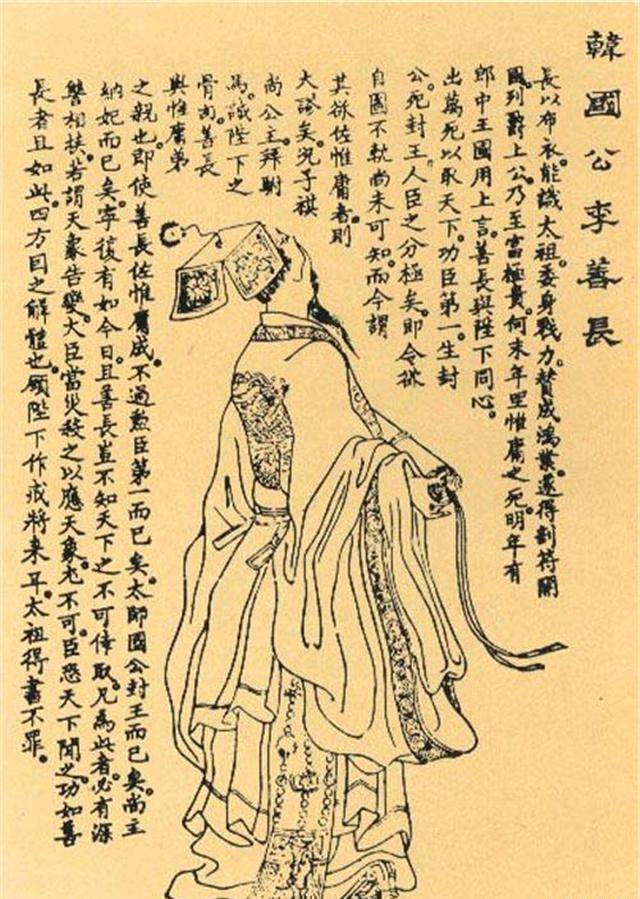 韓國公李善長
長以布衣能識太祖。委身戮力。贊成鴻業。遂得剖符開
國。列爵上公。乃至富極貴。何末年里惟庸之死。明年有
郎中王國用上言。善長與陛下同心。
出萬死以取天下。功臣第一。生封
公。死封王。人臣之分極矣。即令欲
自圖不軌。尚未可知。而今謂
其欲佐惟庸者。則
大謬矣。況子祺
尚公主。拜駙
馬。誠陛下之
骨肉。善長
與惟庸第
之親也。即使善長佐惟庸成。不過勲臣第一而已矣。太師國公封王而已矣。尚主
納妃而已矣。寧復有如今日。且善長豈不知天下之不可倖取。凡為此者。必有深
讐相挾。若謂天象告變。大臣當災。殺之以應天象。尤不可。臣恐天下聞之。功如善
長者且如此。四方因之解體也。願陛下作戒將來耳。太祖得書不罪。